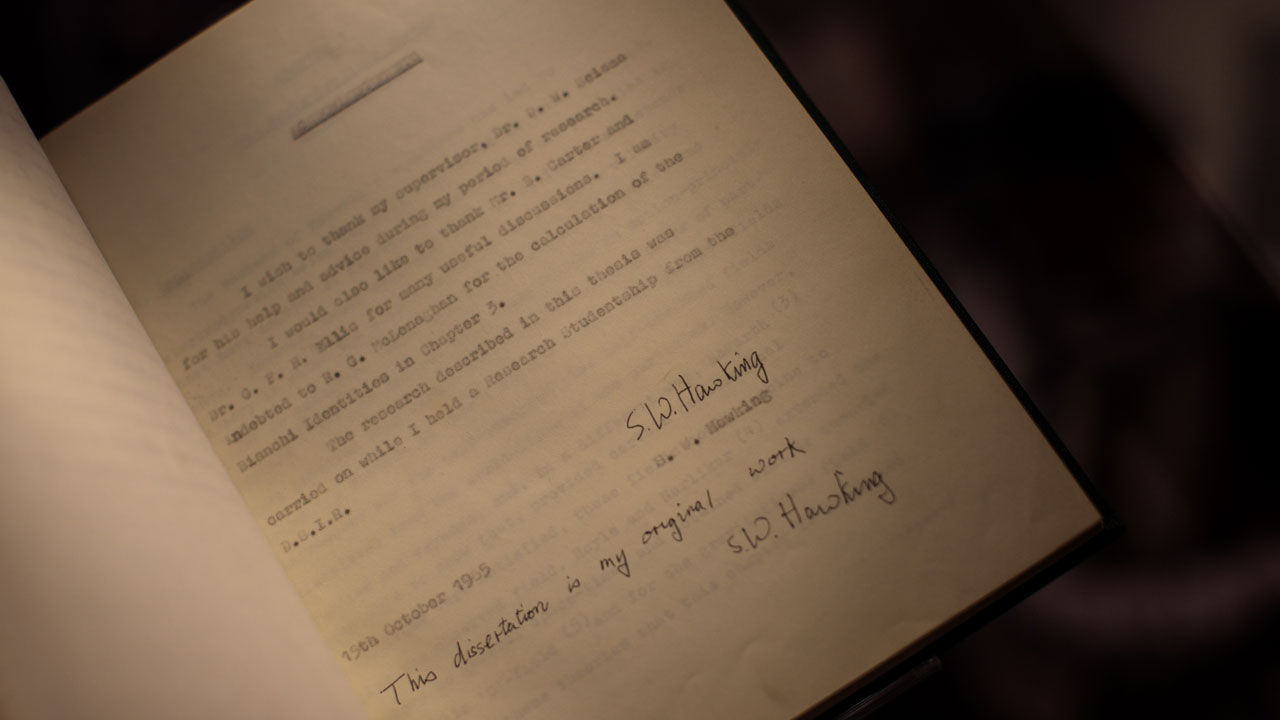 I wish to thank my supervisor, Dr. D. W. Sciama
for his help and advice during my period of research.
I would also like to thank Mr. B. Carter and
Dr. G. F. R. Ellis for many useful discussions. I am
indebted to R. G. McLenaghan for the calculation of the
Bianchi Identities in Chapter 3.
The research described in this thesis was
carried on while I held a Research Studentship from the
D.S.I.R.
S.W. Hawking
S. W. Hawking
15th October 1965
This dissertation is my original work
S.W. Hawking